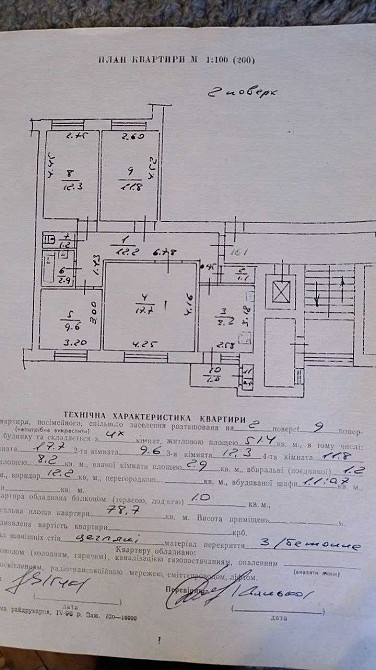 ПЛАН КВАРТИРИ М 1:100 (200)
2 поверх
2.75
2.60
8
12.3
9
11.8
7
1.2
1
12.2
6.78
1.43
6
2.9
2
1.1
4
17.7
4.16
5
9.6
3.00
3
8.2
3.18
3.20
4.25
2.58
10
ТЕХНІЧНА ХАРАКТЕРИСТИКА КВАРТИРИ
квартира, посімейного, спільного заселення розташована на 2 поверсі 9 повер-
(непотрібне викреслити)
будинку та складається з 4х кімнат, житловою площею 51.4 кв. м., в тому числі:
кімната 17.7 2-га кімната 9.6 3-я кімната 12.3 4-та кімната 11.8
площею 8.2 кв. м., ванної кімнати площею 2.9 кв. м., вбиральні (поєднаної) 1.2
м., коридор 12.2 кв. м., перегородок кв. м., вбудованої шафи 1.1; 0.7 кв. м.,
кв. м.
квартира обладнана балконом (терасою, лоджією) 1.0 кв. м.,
загальна площа 78.7 кв. м. Висота приміщень
вартість квартири крб.
зовнішніх стін цегляні матеріал перекриття З/бетонне
Квартиру обладнано:
водопроводом (холодним, гарячим), каналізацією газопостачанням, опаленням
освітленням, радіо-телефонною мережею, сміттєпроводом, ліфтом.
Перевірив
дата
дата